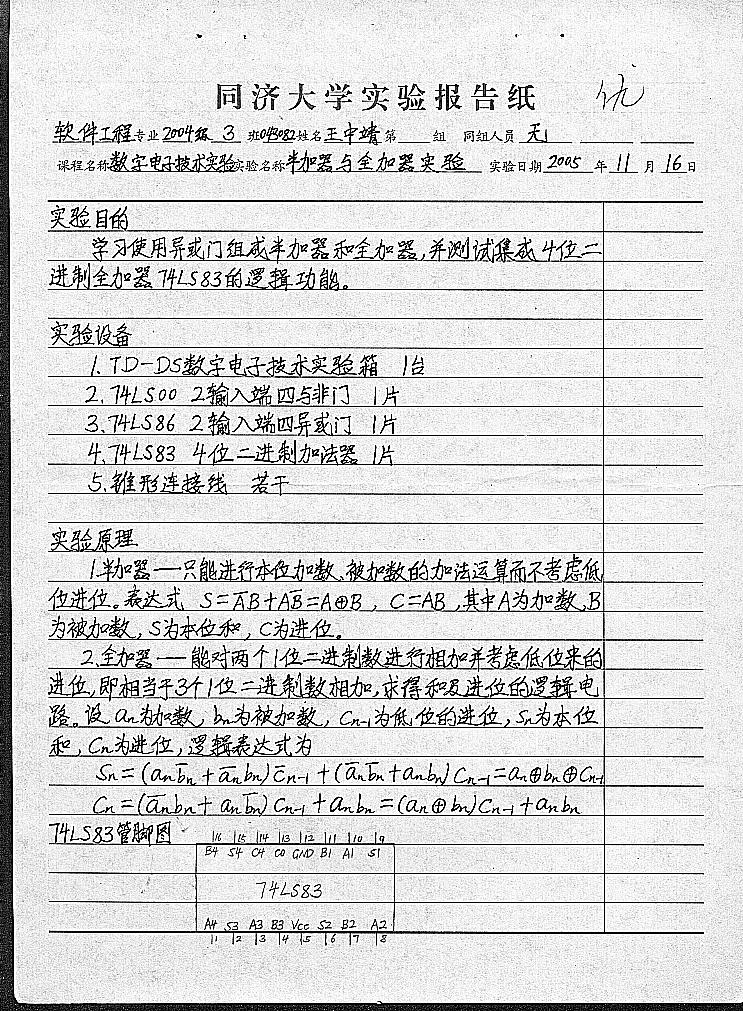 同济大学实验报告纸 优
软件工程专业2004级 3 班043082姓名王中靖第 组 同组人员 无
课程名称数字电子技术实验实验名称半加器与全加器实验 实验日期2005 年11月16日
实验目的
学习使用异或门组成半加器和全加器,并测试集成4位二
进制全加器74LS83的逻辑功能。
实验设备
1.TD-DS数字电子技术实验箱 1台
2.74LS00 2输入端四与非门 1片
3.74LS86 2输入端四异或门 1片
4.74LS83 4位二进制加法器 1片
5.锥形连接线 若干
实验原理
1.半加器——只能进行本位加数、被加数的加法运算而不考虑低
位进位。表达式 S=A̅B+AB̅=A⊕B, C=AB,其中A为加数,B
为被加数,S为本位和,C为进位。
2.全加器——能对两个1位二进制数进行相加并考虑低位来的
进位,即相当于3个1位二进制数相加,求得和及进位的逻辑电
路。设an为加数,bn为被加数,Cn-1为低位的进位,Sn为本位
和,Cn为进位,逻辑表达式为
Sn=(anb̅n+a̅nbn)C̅n-1+(a̅nb̅n+anbn)Cn-1=an⊕bn⊕Cn-1
Cn=(a̅nbn+anb̅n)Cn-1+anbn=(an⊕bn)Cn-1+anbn
74LS83管脚图
16 15 14 13 12 11 10 9
B4 S4 C4 C0 GND B1 A1 S1
74LS83
A4 S3 A3 B3 Vcc S2 B2 A2
1 2 3 4 5 6 7 8